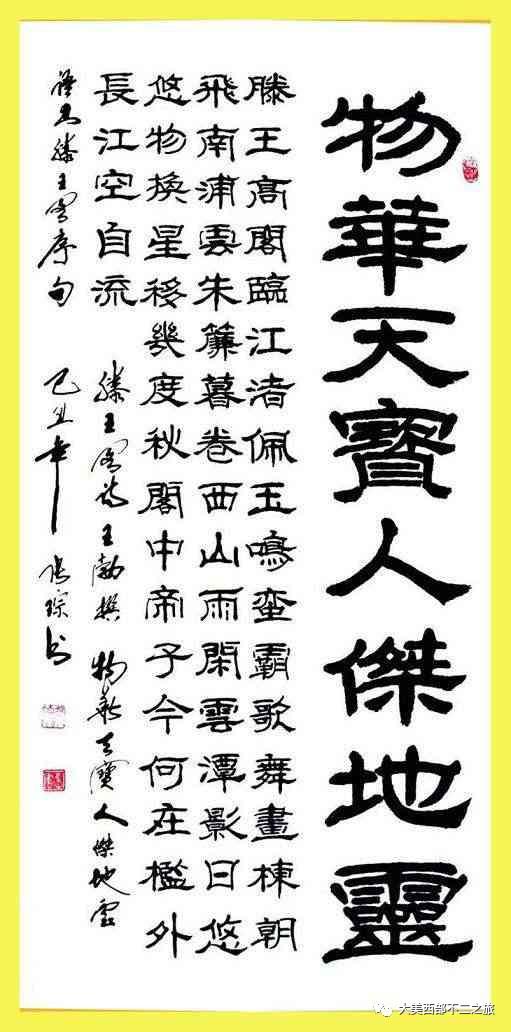 物華天寶人傑地靈
滕王高閣臨江渚佩玉鳴蛮霸歌舞畫棟朝
飛南浦雲朱簾暮卷西山雨閑雲潭影日悠
悠物換星移幾度秋閣中帝子今何在檻外
長江空自流
滕王閣詩王勃撰 物華天寶人傑地靈
語出滕王閣序句 己丑年 張琮書
大美西部不二之旅